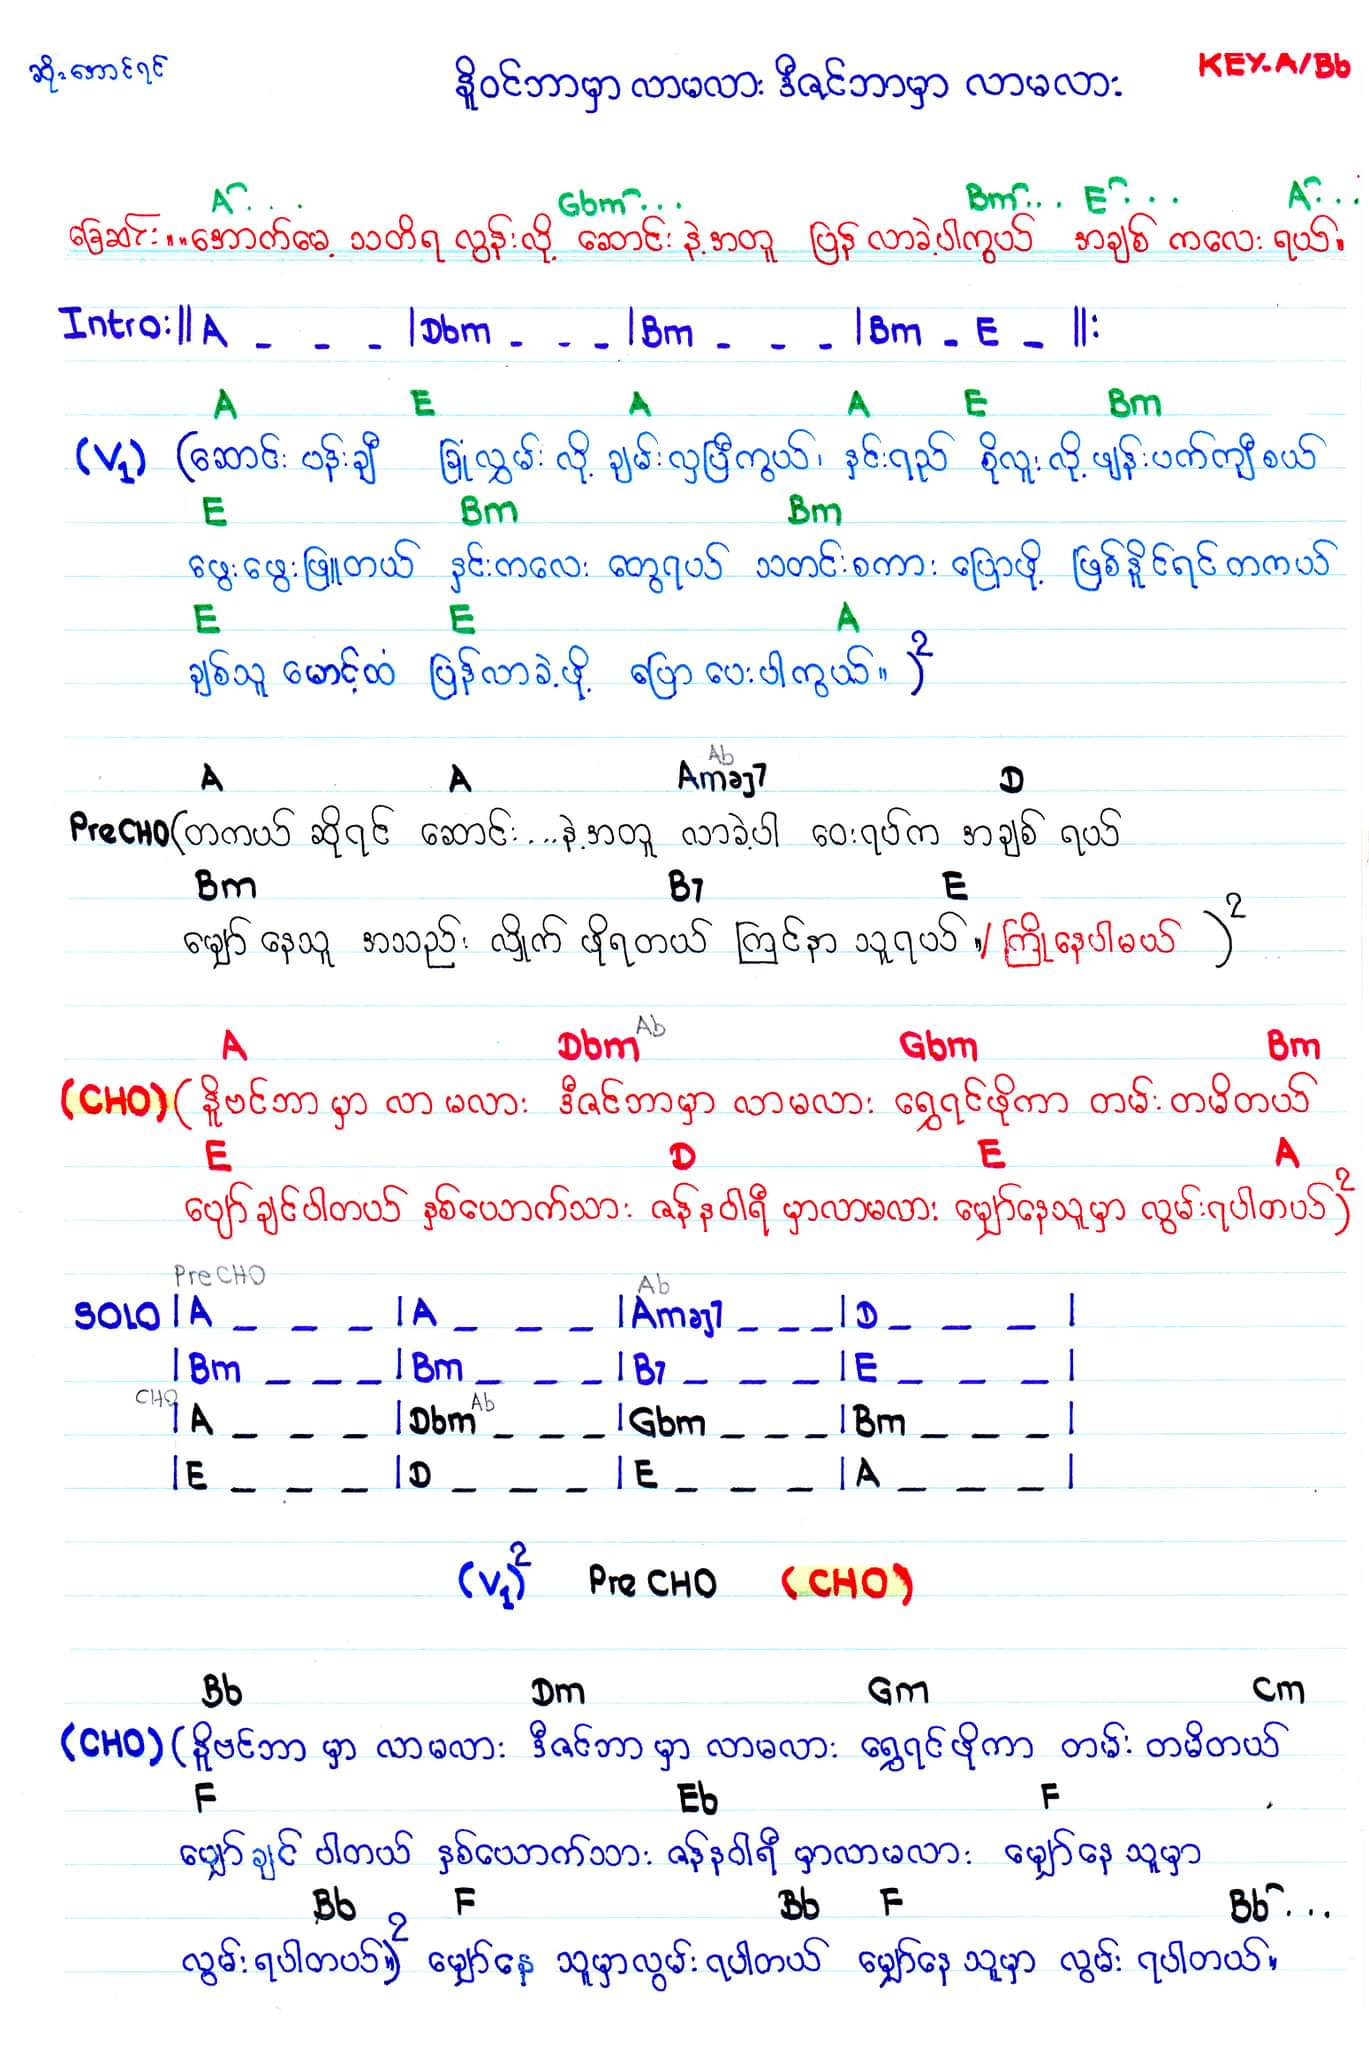 ဆို-အောင်ရင်
နိုဝင်ဘာမှာ လာမလား ဒီဇင်ဘာမှာ လာမလား
KEY-A/Bb
A⌒... Gbm⌒... Bm⌒... E⌒... A⌒...
ခြေဆင်း "" အောက်မေ့ သတိရ လွန်းလို့ ဆောင်း နဲ့အတူ ပြန် လာခဲ့ပါကွယ် အချစ် ကလေး ရယ်။
Intro:|| A _ _ _ | Dbm _ _ _ | Bm _ _ _ | Bm _ E _ ||:
A E A A E Bm
(V1) (ဆောင်း ပန်းချီ ခြုံလွှမ်း လို့ ချမ်းလှပြီကွယ်၊ နှင်းရည် စိုလူး လို့ ဖျန်းပက်ကျီစယ်
E Bm Bm
ဖွေးဖွေးဖြူတယ် နှင်းကလေး တွေရယ် သတင်းစကား ပြောဖို့ ဖြစ်နိုင်ရင် တကယ်
E E A
ချစ်သူ မောင့်ထံ ပြန်လာခဲ့ဖို့ ပြော ပေးပါကွယ်။ )2
Ab
A A Amaj7 D
PreCHO(တကယ် ဆိုရင် ဆောင်း...နဲ့အတူ လာခဲ့ပါ ဝေးရပ်က အချစ် ရယ်
Bm B7 E
မျှော် နေသူ အသည်း လှိုက် ဖိုရတယ် ကြင်နာ သူရယ် ။/ ကြိုနေပါမယ် )2
A Dbm Ab Gbm Bm
(CHO) ( နိုဗင်ဘာ မှာ လာ မလား ဒီဇင်ဘာမှာ လာမလား ရွှေရင်ဖိုကာ တမ်း တမိတယ်
E D E A
ပျော်ချင်ပါတယ် နှစ်ယောက်သား ဇန်နဝါရီ မှာလာမလား မျှော်နေသူမှာ လွမ်းရပါတယ်)2
PreCHO Ab
SOLO | A _ _ _ | A _ _ _ | Amaj7 _ _ _ | D _ _ _ |
| Bm _ _ _ | Bm _ _ _ | B7 _ _ _ | E _ _ _ |
CHO | A _ _ _ | Dbm Ab _ _ _ | Gbm _ _ _ | Bm _ _ _ |
| E _ _ _ | D _ _ _ | E _ _ _ | A _ _ _ |
(V1)2 PreCHO (CHO)
Bb Dm Gm Cm
(CHO) (နိုဗင်ဘာ မှာ လာမလား ဒီဇင်ဘာ မှာ လာမလား ရွှေရင်ဖိုကာ တမ်း တမိတယ်
F Eb F
မျှော်ချင် ပါတယ် နှစ်ယောက်သား ဇန်နဝါရီ မှာလာမလား မျှော်နေ သူမှာ
Bb F Bb F Bb⌒...
လွမ်းရပါတယ်။)2 မျှော်နေ သူမှာလွမ်း ရပါတယ် မျှော်နေ သူမှာ လွမ်း ရပါတယ်။